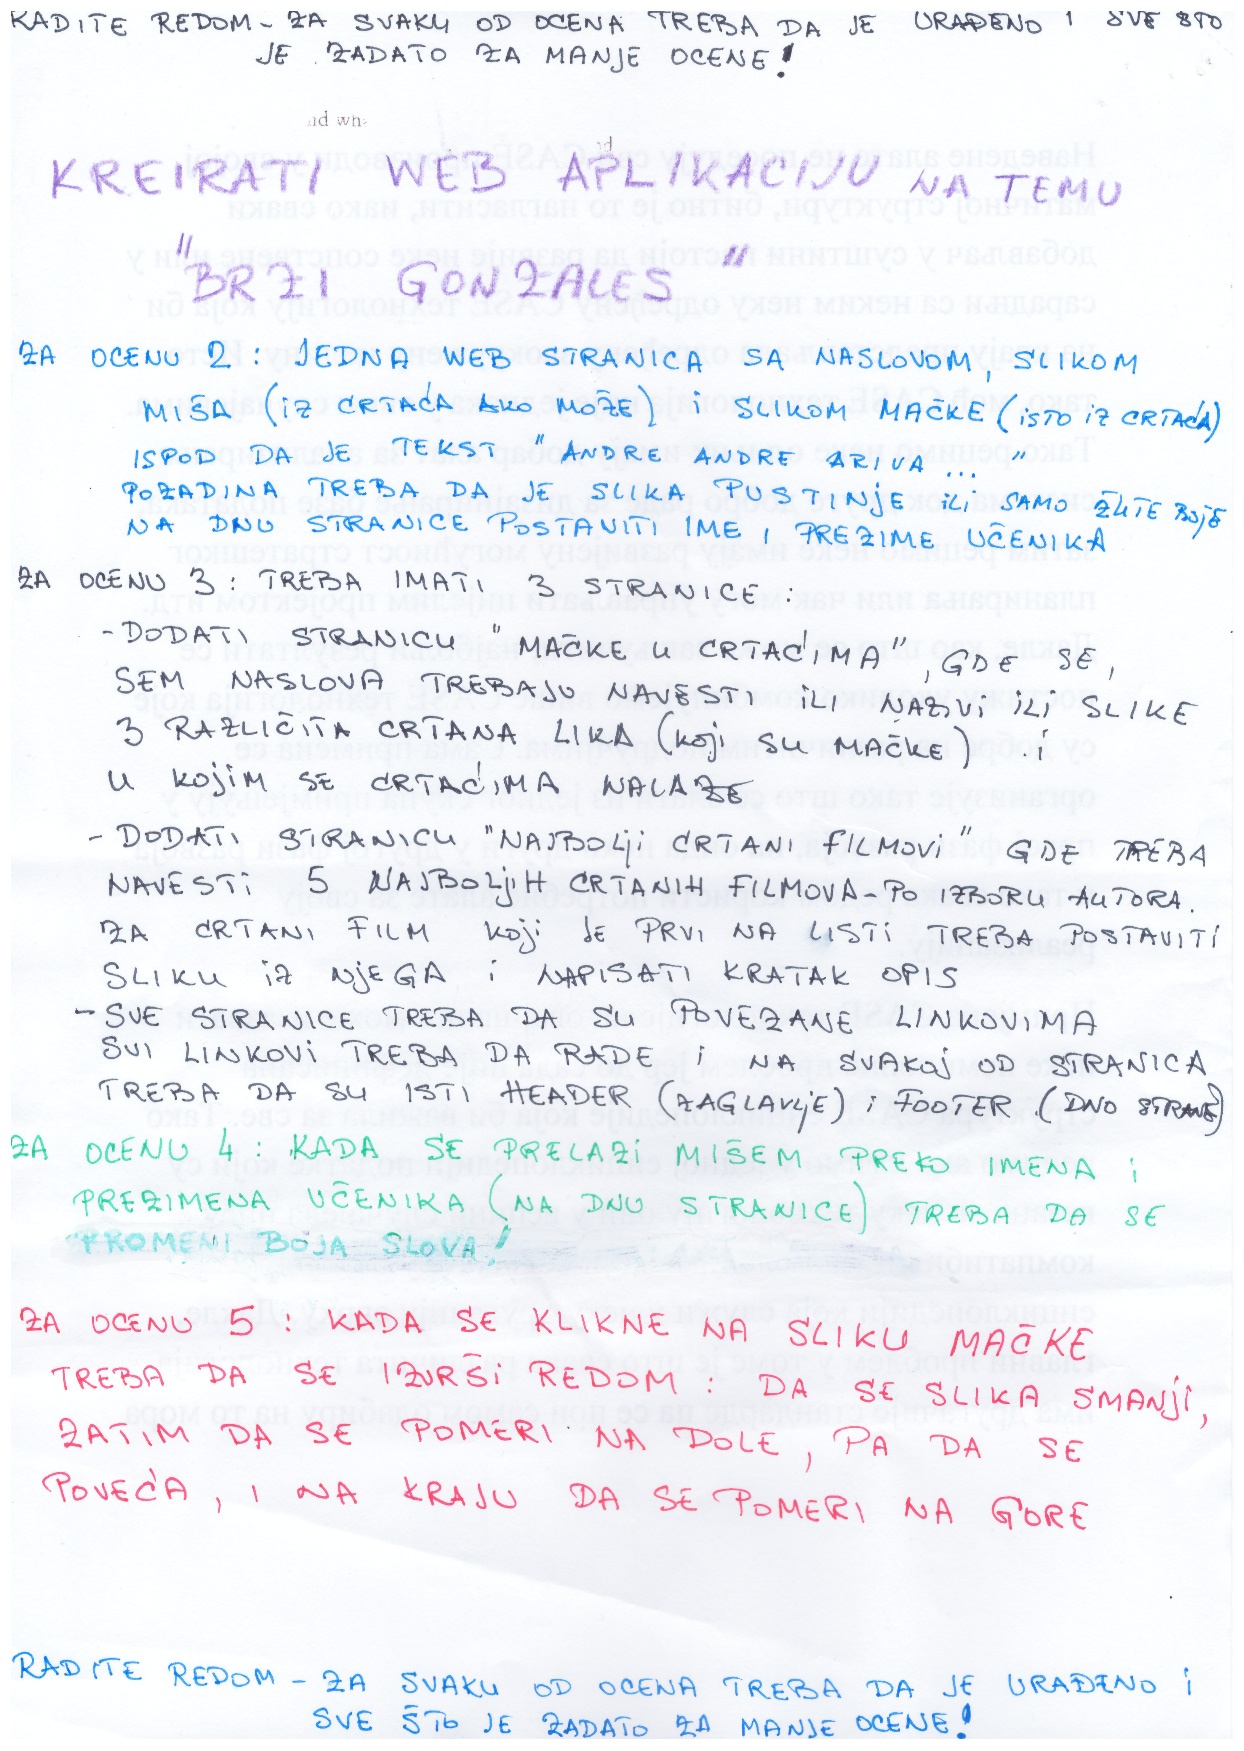 RADITE REDOM - ZA SVAKU OD OCENA TREBA DA JE URAĐENO I SVE ŠTO
JE ZADATO ZA MANJE OCENE!
nd wh
KREIRATI WEB APLIKACIJU NA TEMU
"BRZI GONZALES"
ZA OCENU 2: JEDNA WEB STRANICA SA NASLOVOM, SLIKOM
MIŠA (IZ CRTAĆA AKO MOŽE) I SLIKOM MAČKE (ISTO IZ CRTAĆA)
ISPOD DA JE TEKST "ANDRE ANDRE ARIVA ... "
POZADINA TREBA DA JE SLIKA PUSTINJE ILI SAMO ŽUTE BOJE
NA DNU STRANICE POSTAVITI IME I PREZIME UČENIKA
ZA OCENU 3: TREBA IMATI 3 STRANICE:
- DODATI STRANICU "MAČKE U CRTAĆIMA", GDE SE,
SEM NASLOVA TREBAJU NAVESTI ILI NAZIVI ILI SLIKE
3 RAZLIČITA CRTANA LIKA (KOJI SU MAČKE) I
U KOJIM SE CRTAĆIMA NALAZE
- DODATI STRANICU "NAJBOLJI CRTANI FILMOVI" GDE TREBA
NAVESTI 5 NAJBOLJIH CRTANIH FILMOVA PO IZBORU AUTORA.
ZA CRTANI FILM KOJI JE PRVI NA LISTI TREBA POSTAVITI
SLIKU IZ NJEGA I NAPISATI KRATAK OPIS
- SVE STRANICE TREBA DA SU POVEZANE LINKOVIMA
SVI LINKOVI TREBA DA RADE I NA SVAKOJ OD STRANICA
TREBA DA SU ISTI HEADER (ZAGLAVLJE) I FOOTER (DNO STRANE)
ZA OCENU 4: KADA SE PRELAZI MIŠEM PREKO IMENA I
PREZIMENA UČENIKA (NA DNU STRANICE) TREBA DA SE
PROMENI BOJA SLOVA!
ZA OCENU 5: KADA SE KLIKNE NA SLIKU MAČKE
TREBA DA SE IZVRŠI REDOM: DA SE SLIKA SMANJI,
ZATIM DA SE POMERI NA DOLE, PA DA SE
POVEĆA, I NA KRAJU DA SE POMERI NA GORE
RADITE REDOM - ZA SVAKU OD OCENA TREBA DA JE URAĐENO I
SVE ŠTO JE ZADATO ZA MANJE OCENE!